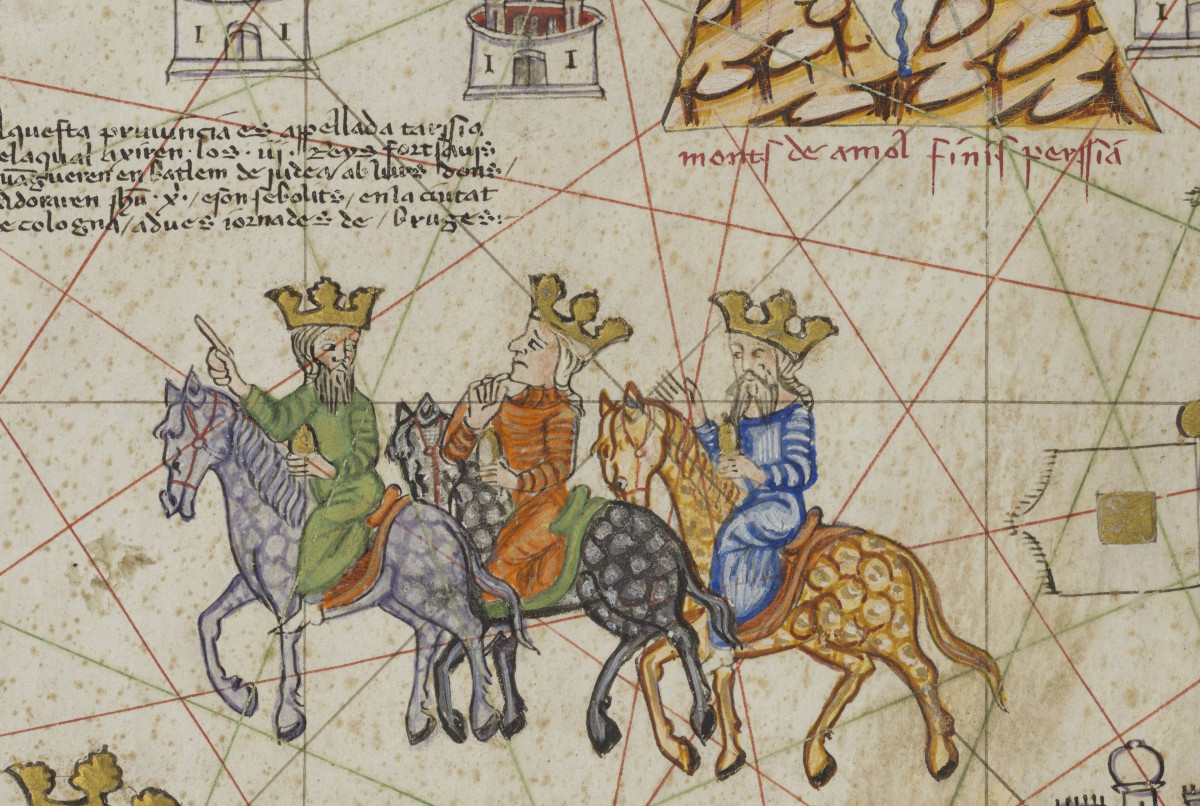 Aquesta prouincia es apellada tarssia
dela qual axiren los iii Reys fort sauis
en batlem de judea ab lurs dons
Adoraren jhũ x̃. e son sebolits en la ciutat
de cologna adues iornades de bruges:
monts de amol finis perssia